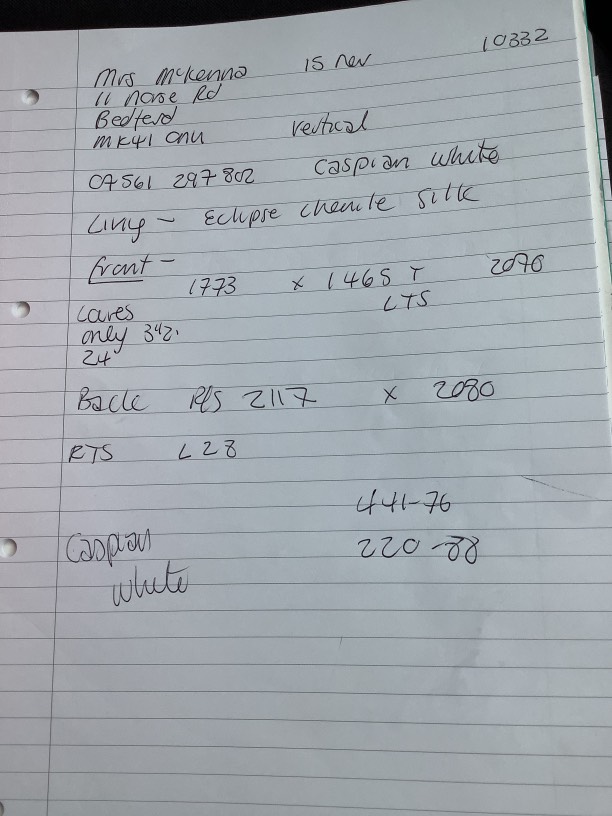 10332
Mrs McKenna 15 nov
11 Norse Rd
Bedford
MK41 0NU vertical
07561 297802 Caspian white
Living - Eclipse chenile silk
front -
1773 x 1465 T 2070
LTS
Lovres
only 342.
24
Back R/S 2117 x 2080
RTS L28
441-76
Caspian 220-88
white